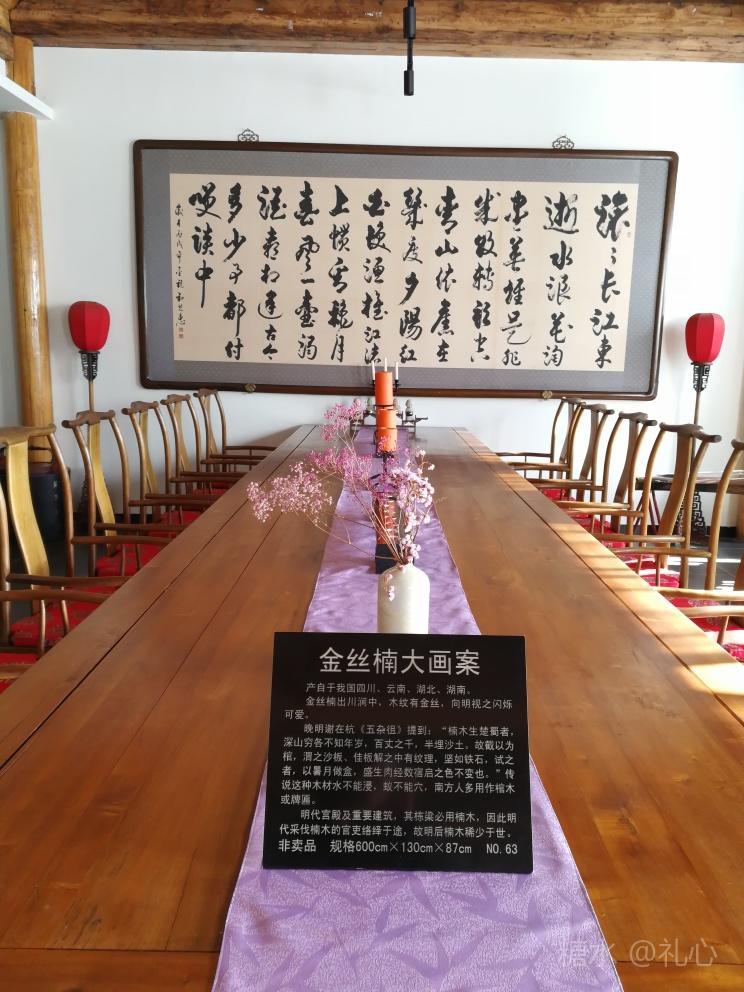 滚滚长江东
逝水浪花淘
尽英雄是非
成败转头空
青山依旧在
几度夕阳红
白发渔樵江渚
上惯看秋月
春风一壶浊
酒喜相逢古今
多少事都付
笑谈中
金丝楠大画案
产自于我国四川、云南、湖北、湖南。
金丝楠出川涧中，木纹有金丝，向明视之闪烁
可爱。
晚明谢在杭《五杂俎》提到：“楠木生楚蜀者，
深山穷谷不知年岁，百丈之千，半埋沙土。故截以为
棺，渭之沙板、佳板解之中有纹理，坚如铁石，试之
者，以暑月做盒，盛生肉经数宿启之色不变也。”传
说这种木材水不能浸，蚁不能穴，南方人多用作棺木
或牌匾。
明代宫殿及重要建筑，其栋梁必用楠木，因此明
代采伐楠木的官吏络绎于途，故明后楠木稀少于世。
非卖品 规格600cm×130cm×87cm NO.63
糖水 @礼心